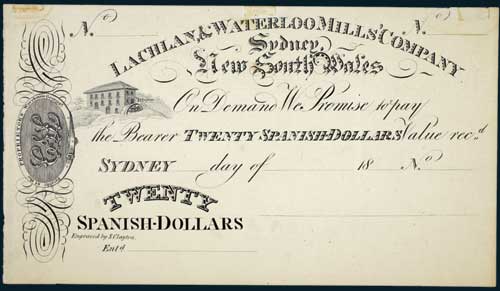 No
No
LACHLAN & WATERLOO MILLS' COMPANY
Sydney
New South Wales
On Demand We Promise to pay
the Bearer TWENTY SPANISH-DOLLARS Value rec.d
SYDNEY day of 18 No
TWENTY
SPANISH-DOLLARS
Engraved by S. Clayton
Ent.d
PROPRIETORS